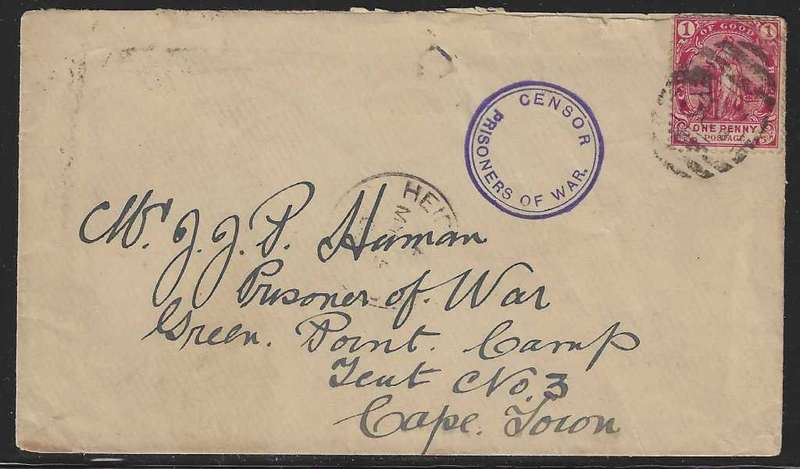 1 OF GOOD 1
ONE PENNY
POSTAGE
CENSOR
PRISONERS OF WAR.
Mr J. J. P. Human
Prisoner of War
Green. Point. Camp
Tent No. 3
Cape. Town